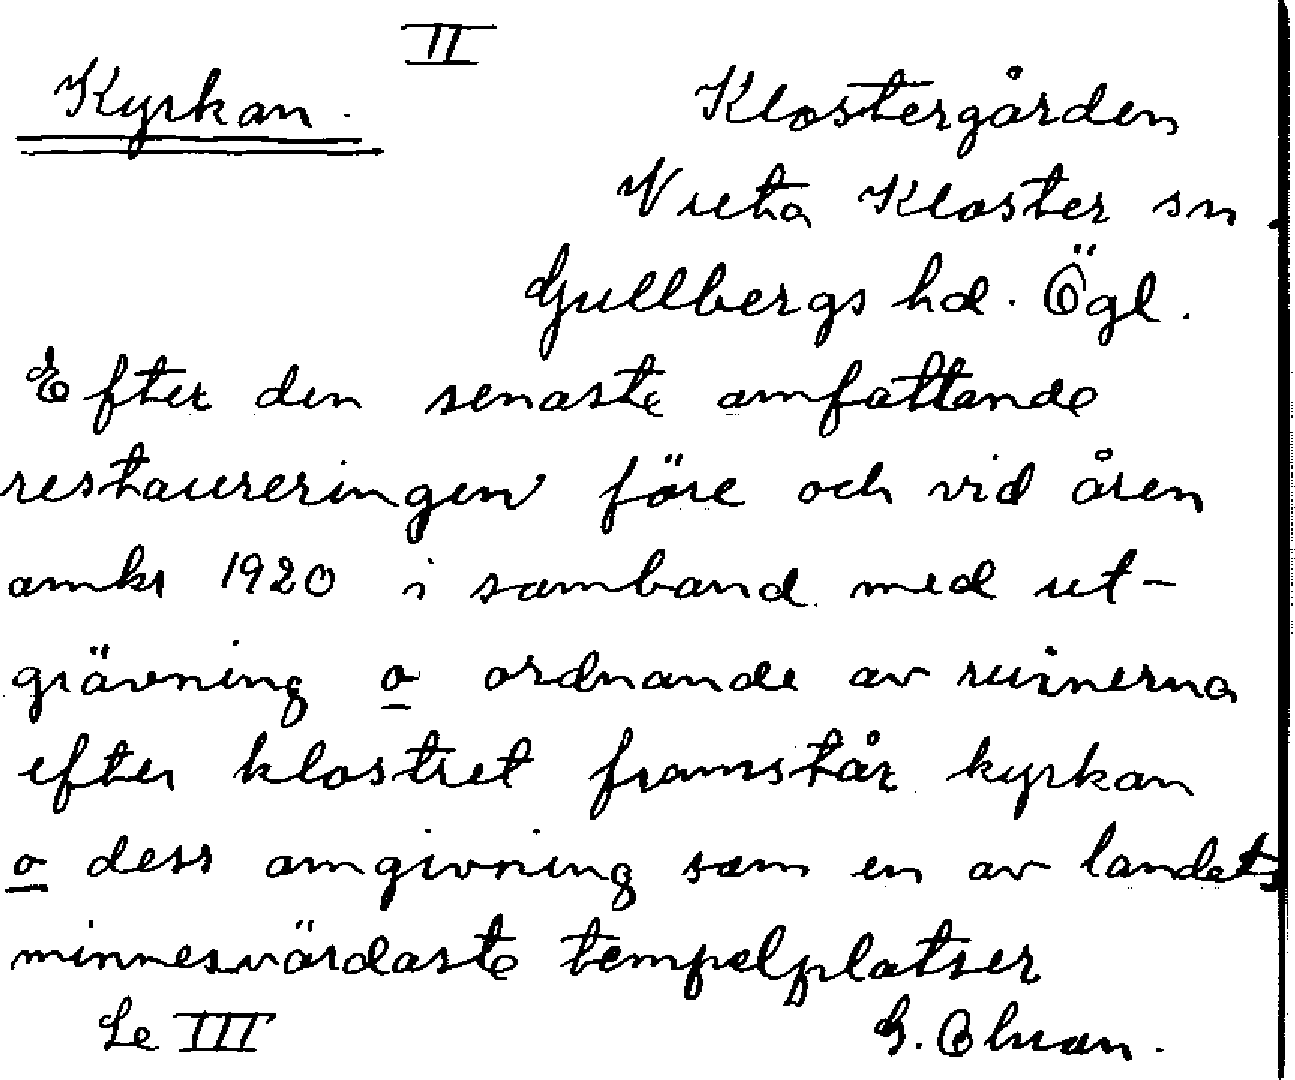 II
Kyrkan.
Klostergården
Vreta Kloster sn.
Gullbergs hd. Ögl.
Efter den senaste omfattande
restaureringen före och vid åren
omkr 1920 i samband med ut-
grävning o ordnande av ruinerna
efter klostret framstår kyrkan
o dess omgivning som en av landets
minnesvärdaste tempelplatser
Se III
G.